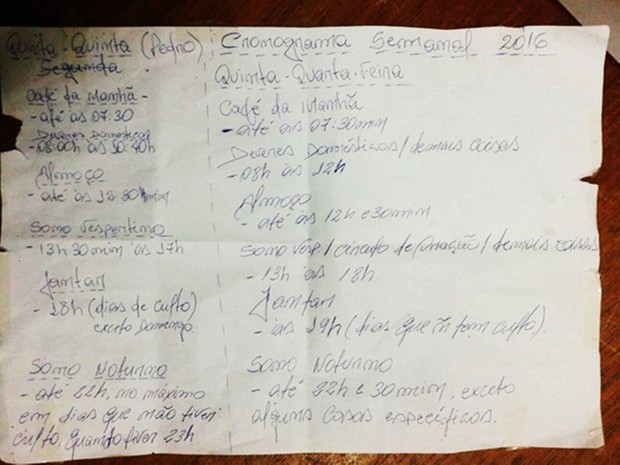 Quarta - Quinta (Pedro)
Segunda
Café da Manhã -
- até às 07:30
Deveres Domésticos
- 08:00h às 10:40h
Almoço
- até às 12:30 mim
Sono Vespertino
- 13h 30mim às 17h
Jantar
- 18h (dias de culto)
exceto Domingo
Sono Noturno
- até 22h, no máximo
em dias que não tiver
culto, quando tiver 23h
Cronograma Semanal 2016
Quinta - Quarta - Feira
Café da Manhã
- até às 07:30mim
Deveres Domésticos / demais coisas
- 08h às 12h
Almoço
- até às 12h e 30mim
Sono Vesp. / Círculo de Oração / demais coisas
- 13h às 18h
Jantar
- às 19h (dias que ñ tem culto).
Sono Noturno
- até 22h e 30mim, exceto
alguns casos específicos.